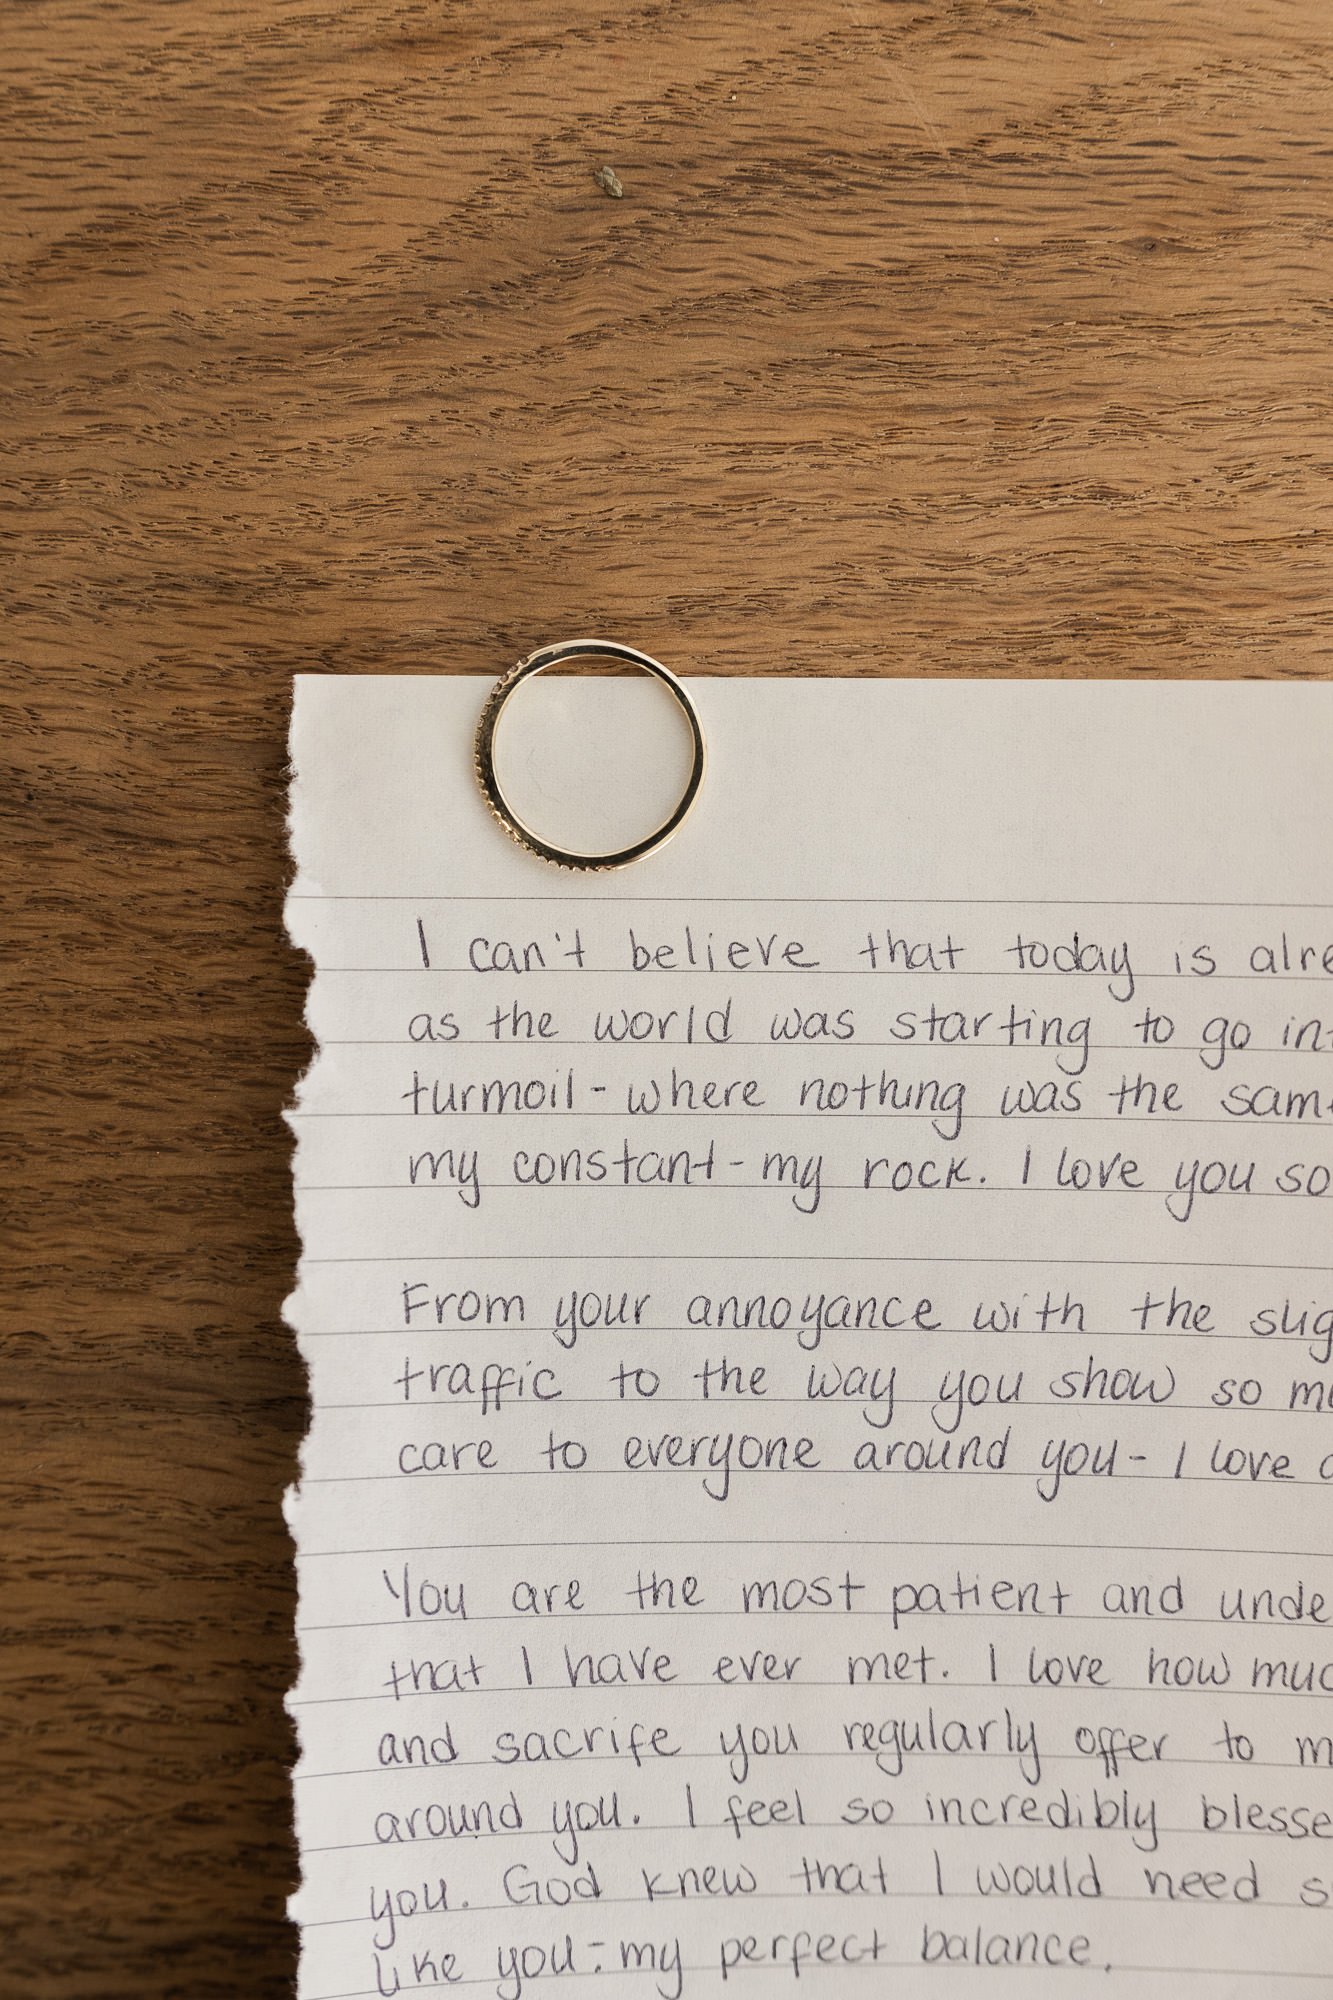 I can't believe that today is alre
as the world was starting to go int
turmoil - where nothing was the same
my constant - my rock. I love you so
From your annoyance with the slig
traffic to the way you show so mu
care to everyone around you - I love a
You are the most patient and unde
that I have ever met. I love how muc
and sacrife you regularly offer to m
around you. I feel so incredibly blesse
you. God knew that I would need s
like you - my perfect balance.